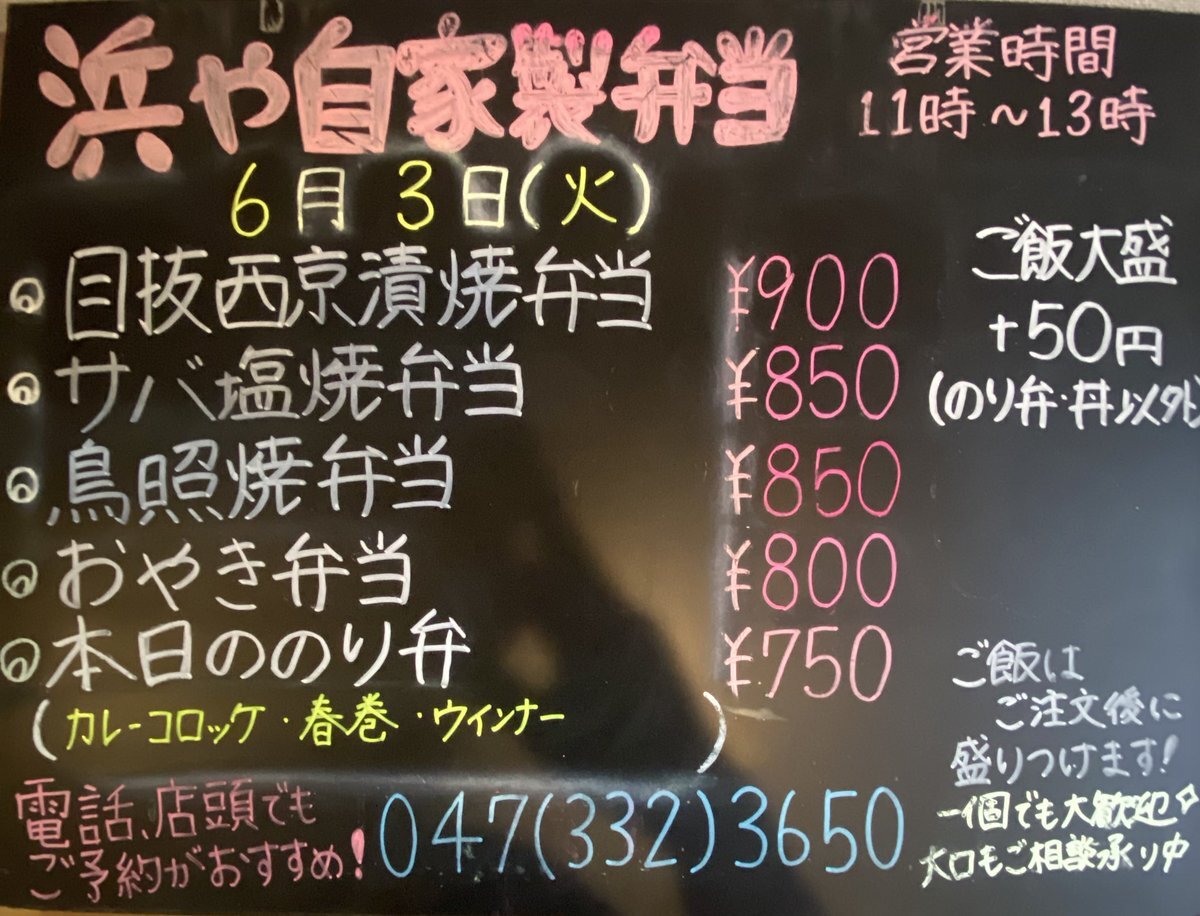 浜や自家製弁当
営業時間
11時～13時
6月 3日(火)
目抜西京漬焼弁当 ¥900
サバ塩焼弁当 ¥850
鳥照焼弁当 ¥850
おやき弁当 ¥800
本日ののり弁 ¥750
(カレーコロッケ・春巻・ウインナー)
ご飯大盛
+50円
(のり弁・丼以外)
ご飯は
ご注文後に
盛りつけます!
一個でも大歓迎
大口もご相談承り中
電話、店頭でも
ご予約がおすすめ!
047(332)3650